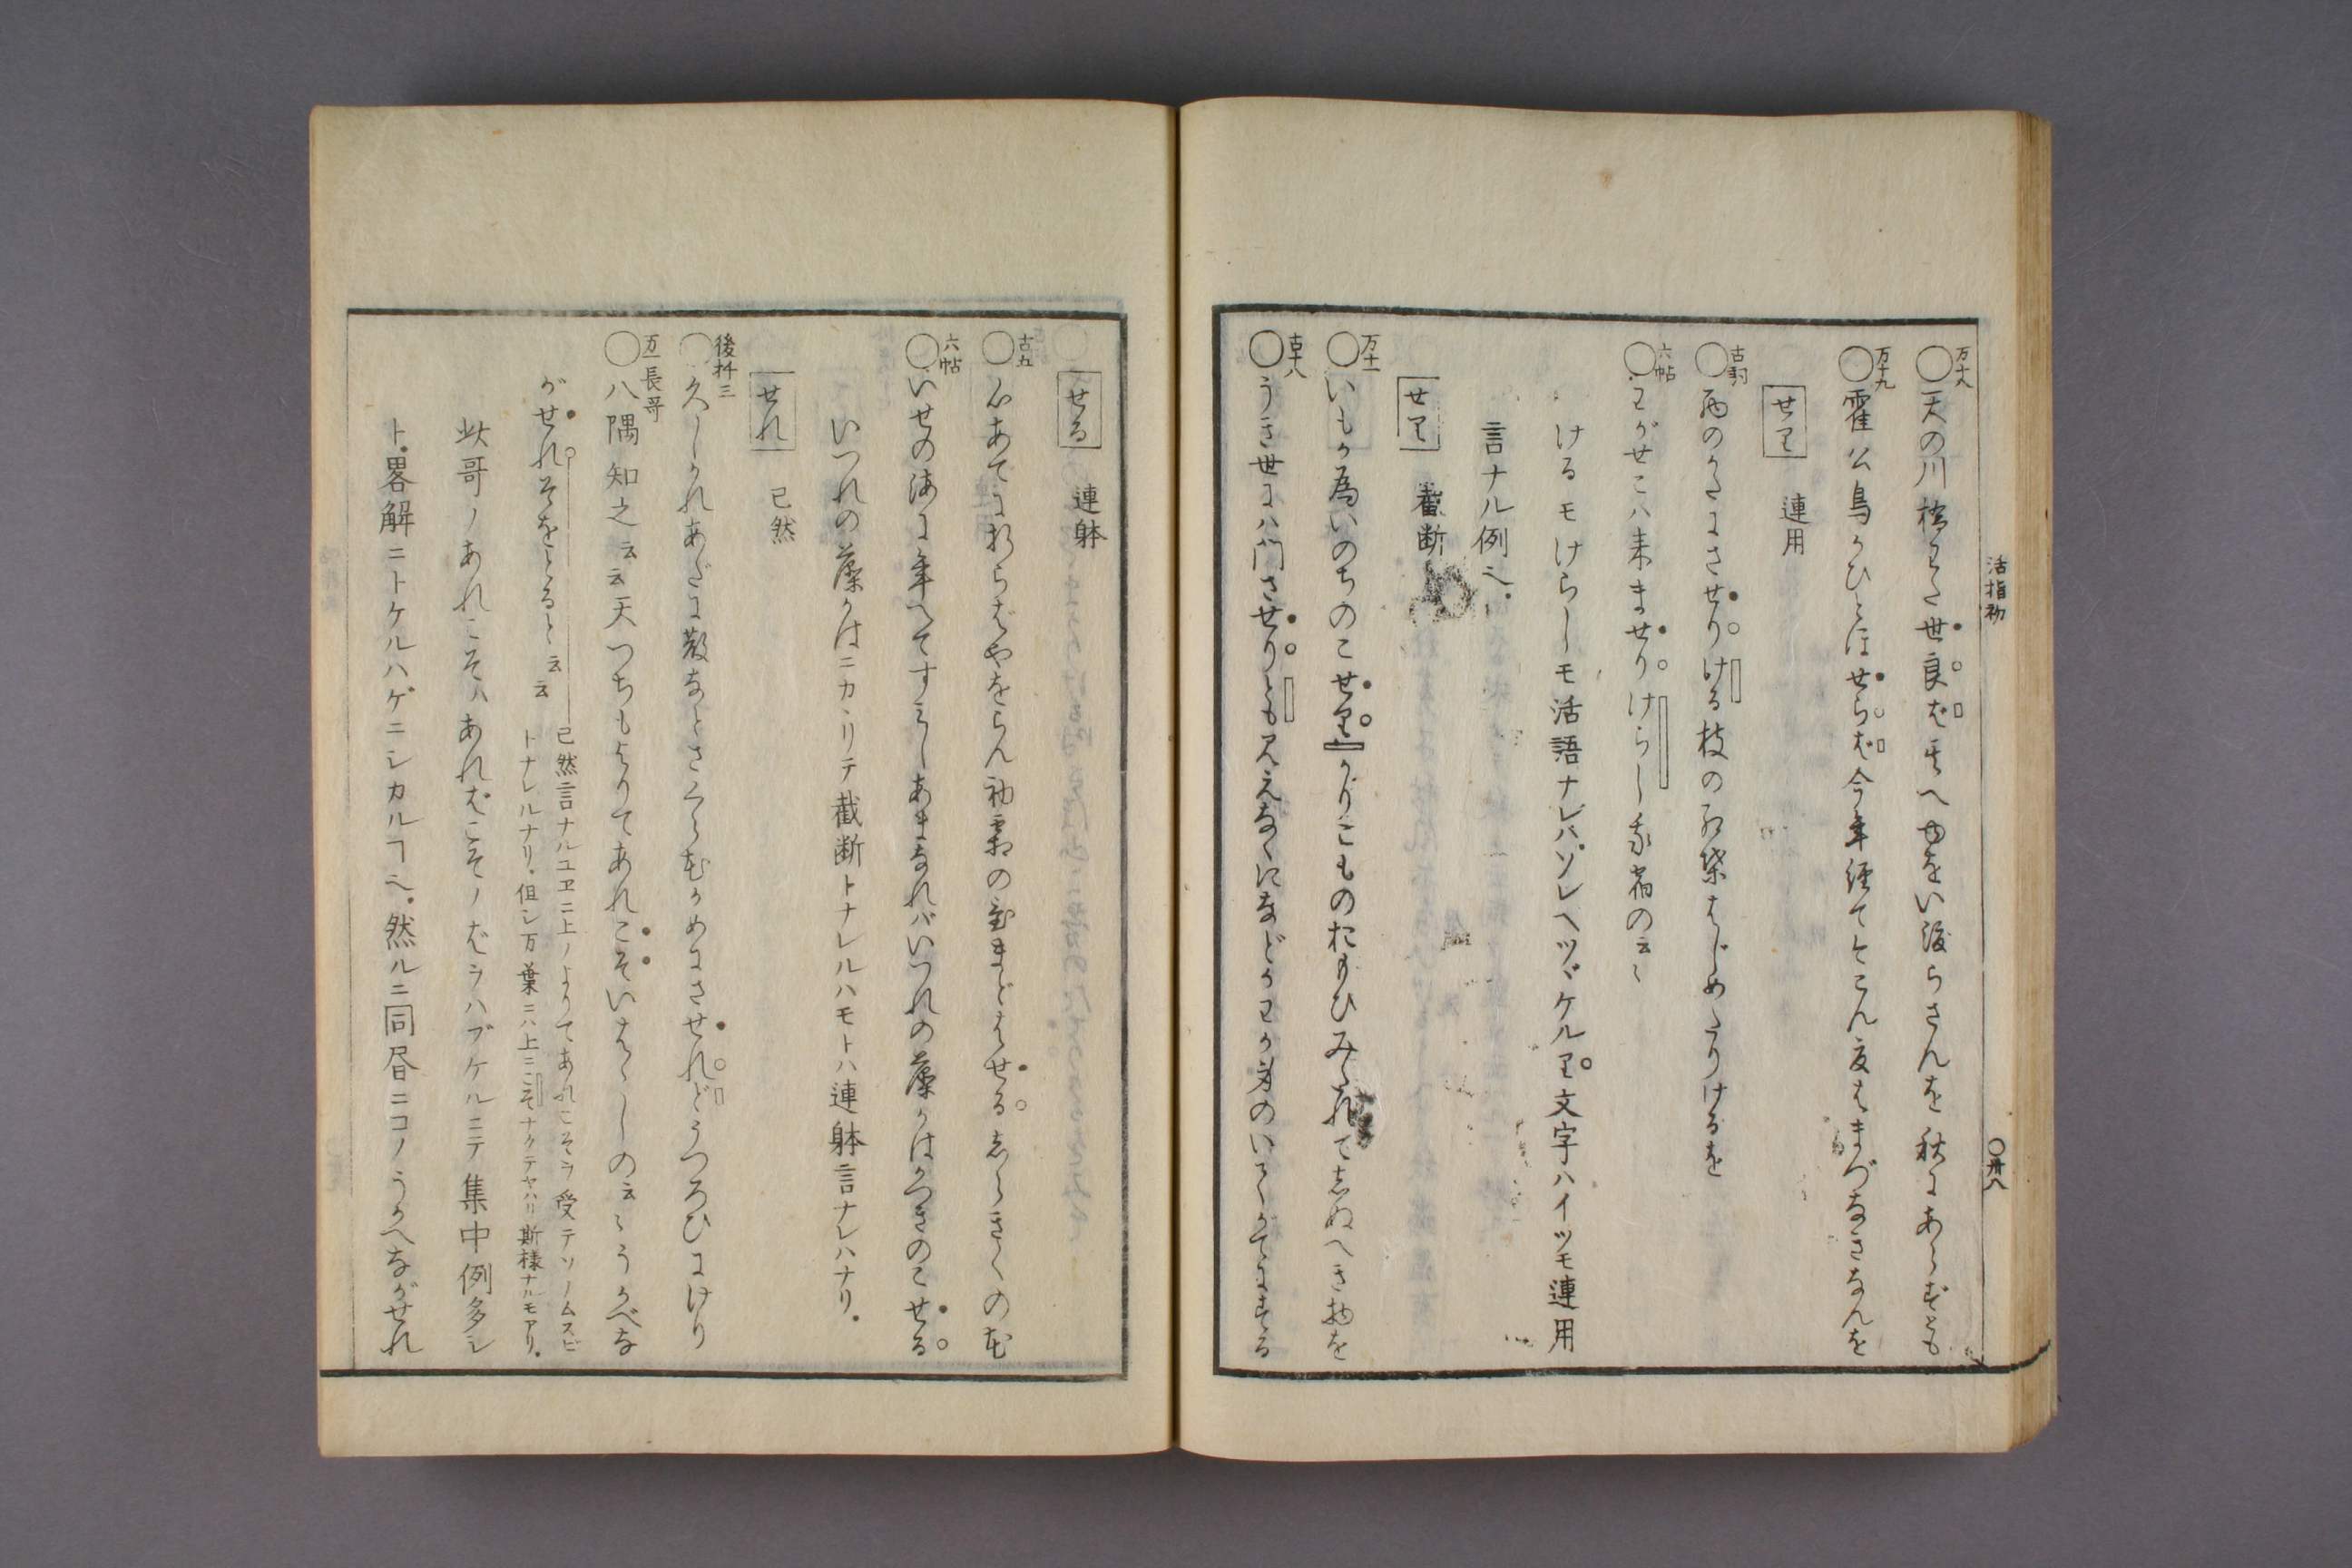 活指初
〇卅八
万十八
〇天の川橋わたせらばそのへゆもい渡らさんを秋にあらずとも
万十九
〇霍公鳥かひとほせらば今年経てきこん夏はまづなきなんを
せり 連用
〇西のかたにさせりける枝のもみぢはじめたりけるを
六帖
〇わがせこハ来ませりけらし我宿の云々
けるモけらしモ活語ナレバソレヘツヾケルり文字ハイツモ連用
言ナル例也
せり 截断
万十一
〇いもが為いのちのこせりかりこものおもひみだれて志ぬへき物を
古十八
〇うき世にハ門させりとも見えなくになどかわか身のいでがてにする
せる 連躰
古五
〇心あてにおらばやをらん初霜のおきまどはせるしらきくの花
六帖
〇いせの海に年へてすみしあまなれバいつれの藻かはかつきのこせる
いつれの藻かはニカヽリテ截断トナレルハモトハ連躰言ナレハナリ
せれ 已然
後拾三
〇久しかれあだに散なとさくら花かめにさせれどうつろひにけり
万一長哥
〇八隅知之云云天つちもよりてあれこそいはゝしの云々うかべな
がせれそをとると云云
已然言ナルユヱニ上ノよりてあれこそヲ受テソノムスビ
トナレルナリ但シ万葉ニハ上ニこそナクテヤハリ斯様ナルモアリ
此哥ノあれこそハあればこそノばヲハブケルニテ集中例多シ
ト畧解ニトケルハゲニシカルヿ也然ルニ同昼ニコノうかへながせれ